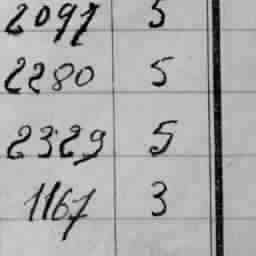 2091 5
2280 5
2329 5
1167 3